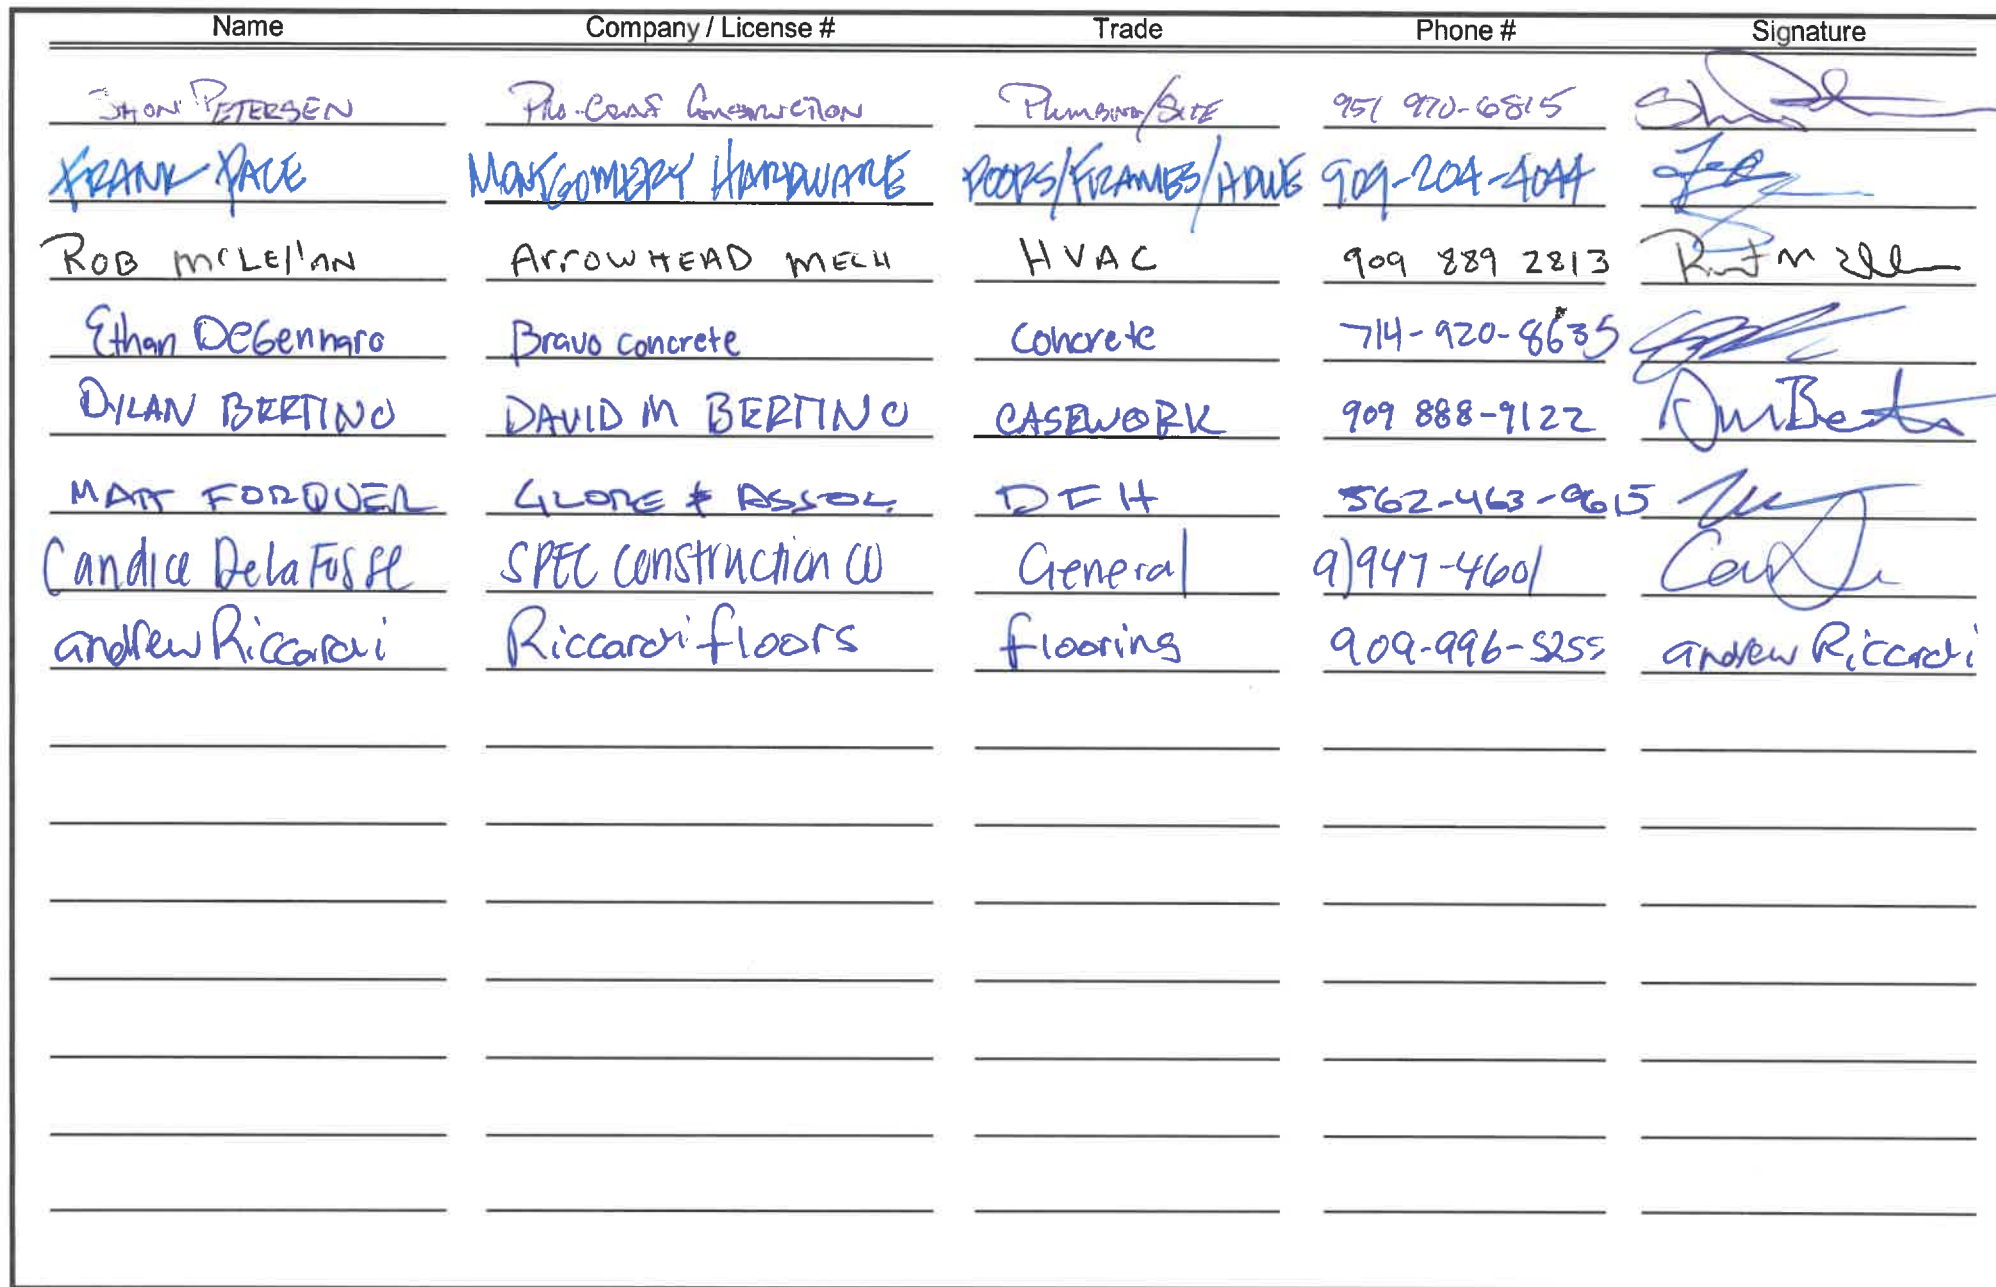 Name Company / License # Trade Phone # Signature
SHON PETERSEN PRO-CRAFT CONSTRUCTION PLUMBING/SITE 951 970-6815
FRANK PACE MONTGOMERY HARDWARE DOORS/FRAMES/HDWE 909-204-4044
ROB McLEllAN ArrowHEAD MECH HVAC 909 889 2813
Ethan DeGennaro Bravo concrete Concrete 714-920-8635
DYLAN BERTINO DAVID M BERTINO CASEWORK 909 888-9122
MATT FORQUER GLORE & ASSOC. DFH 562-463-9615
Candice DelaFosse SPEC Construction CO General 9)947-4601
andrew Riccardi Riccardi floors flooring 909-996-5255 andrew Riccardi